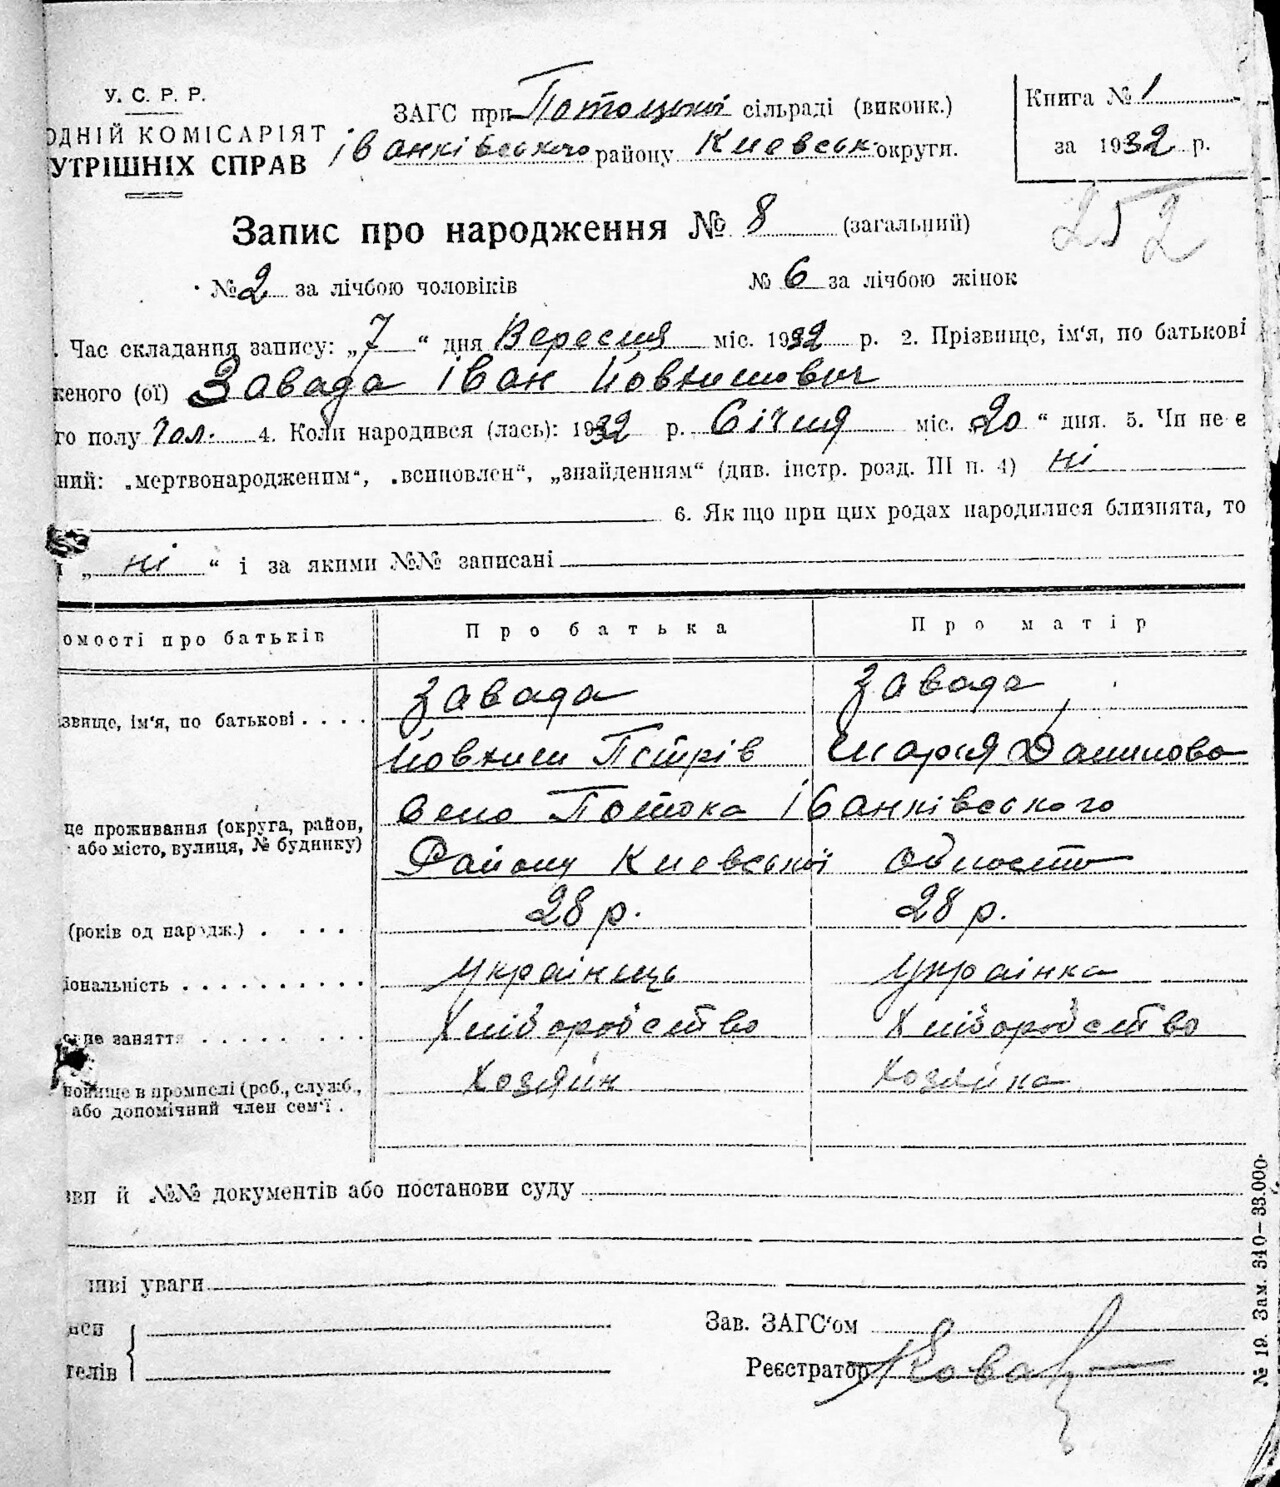 У. С. Р. Р.
ОДНІЙ КОМІСАРІЯТ
УТРІШНІХ СПРАВ
ЗАГС при Потоцькій сільраді (виконк.)
Іванківського району Киевськ округи.
Книга № 1
за 1932 р.
252
Запис про народження № 8 (загальний)
№ 2 за лічбою чоловіків № 6 за лічбою жінок
. Час складання запису: „7“ дня Вересня міс. 1932 р. 2. Прізвище, ім'я, по батькові
женого (ої) Завада Іван Йовхимович
го полу Чол. 4. Коли народився (лась): 1932 р. Січня міс. „20“ дня. 5. Чи не є
ний: „мертвонародженим“, „всиновлен“, „знайденням“ (див. інстр. розд. III п. 4) ні
6. Якщо при цих родах народилися близнята, то
„ні“ і за якими №№ записані
омості про батьків Про батька Про матір
звище, ім'я, по батькові . . . . Завада Завада
Йовхим Петрів Марія Данилова
це проживання (округа, район, або місто, вулиця, № будинку) село Потока Іванківського
Району Киевської області
(років од народж.) . . . . 28 р. 28 р.
іональність . . . . . . . . . . українець українка
не заняття . . . . . . . . Хліборобство Хліборобство
новище в промислі (роб., служб., або допомічний член сем'ї . Хозяйн Хозяйка
зви й №№ документів або постанови суду
ливі уваги
писи
телів
Зав. ЗАГС'ом
Реєстратор
№ 19. Зам. 340—33.000.